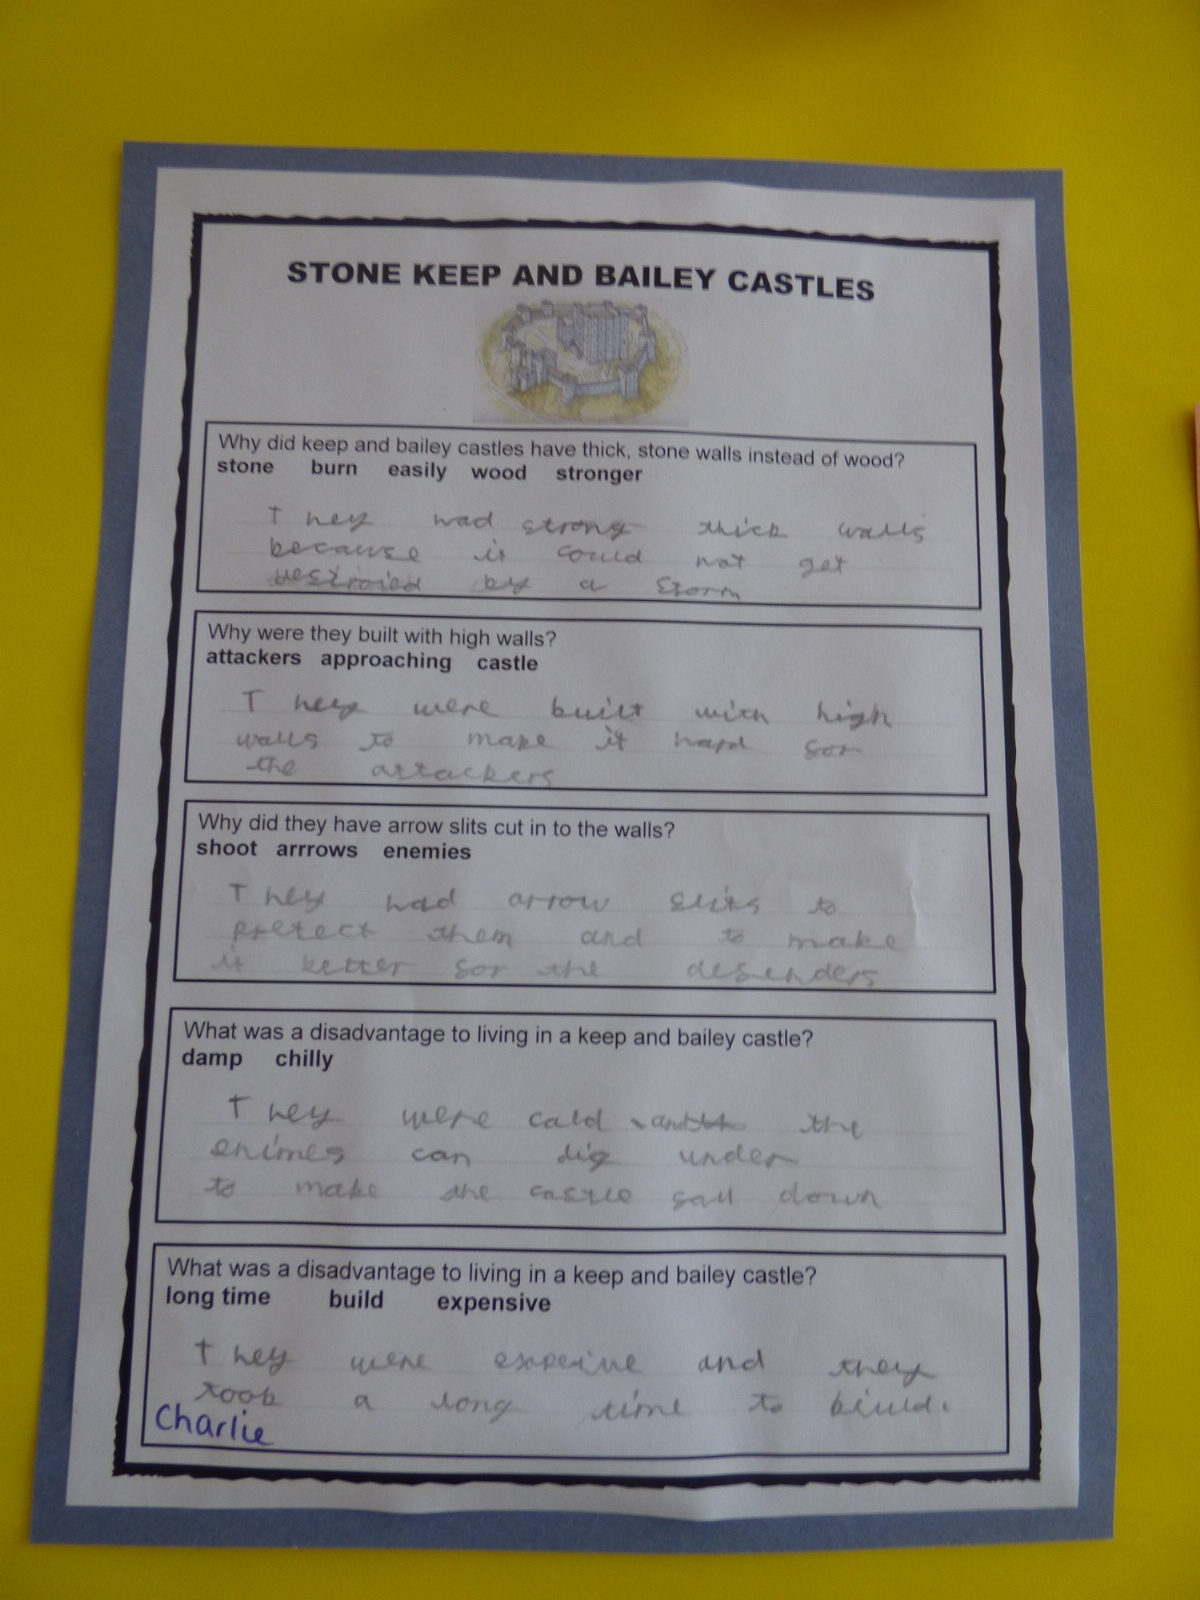 STONE KEEP AND BAILEY CASTLES
Why did keep and bailey castles have thick, stone walls instead of wood?
stone burn easily wood stronger
They had strong thick walls
because it could not get
destroied by a storm
Why were they built with high walls?
attackers approaching castle
They were built with high
walls to make it hard for
the attackers
Why did they have arrow slits cut in to the walls?
shoot arrrows enemies
They had arrow slits to
pretect them and to make
it better for the defenders
What was a disadvantage to living in a keep and bailey castle?
damp chilly
They were cald the
enimes can dig under
to make the castle fall down
What was a disadvantage to living in a keep and bailey castle?
long time build expensive
They were and they
took a long time to biuld.
Charlie